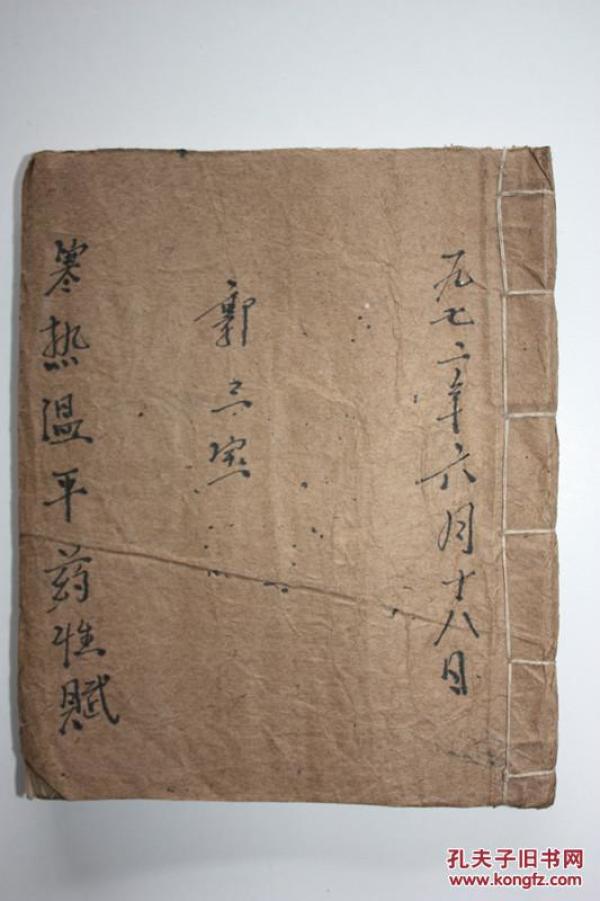 一九七二年六月十八日
郭立宪
寒热温平药性赋
孔夫子旧书网
www.kongfz.com